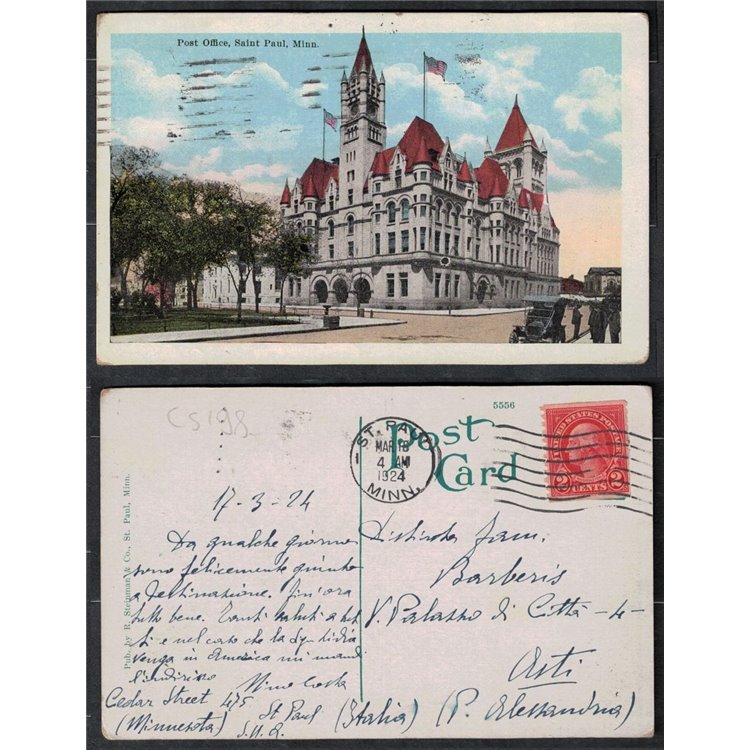 Post Office, Saint Paul, Minn.
CS198
5556
Post
Card
ST. PAUL
MAR 18
4 AM
1924
MINN.
UNITED STATES POSTAGE
2 CENTS 2
Pub. by R. Steinman & Co., St. Paul, Minn.
17-3-24
Da qualche giorno
sono felicemente giunto
a destinazione. Fin'ora
tutto bene. Tanti saluti a tut
ti e nel caso che la Sig. Lidia
venga in America mi mandi
l'indirizzo
Nino Costa
Cedar Street 475
St Paul
(Minnesota) S.U.A.
Distinta Fam.
Barberis
V. Palazzo di Città -4-
Asti
(Italia) (P. Alessandria)